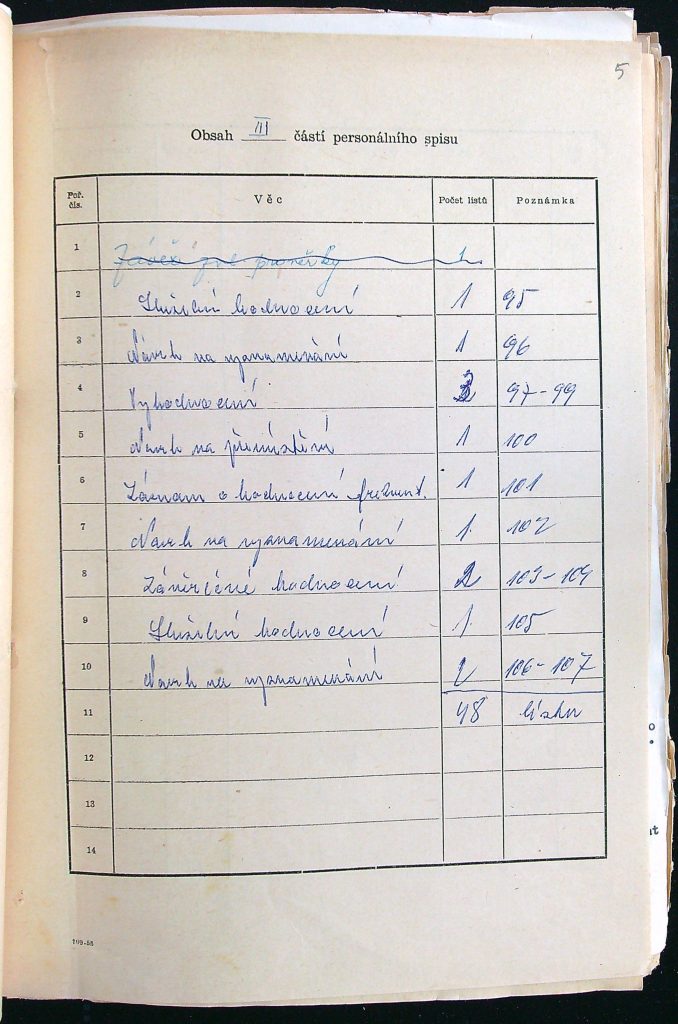 5
Obsah III částí personálního spisu
Poř. čís. Věc Počet listů Poznámka
1 prověrky 1
2 Služební hodnocení 1 95
3 Návrh na vyznamenání 1 96
4 Vyhodnocení 3 97-99
5 Návrh na přemístění 1 100
6 Záznam o hodnocení frekvent. 1 101
7 Návrh na vyznamenání 1. 102
8 Závěrečné hodnocení 2 103-104
9 Služební hodnocení 1. 105
10 Návrh na vyznamenání 2 106-107
11 48
12
13
14